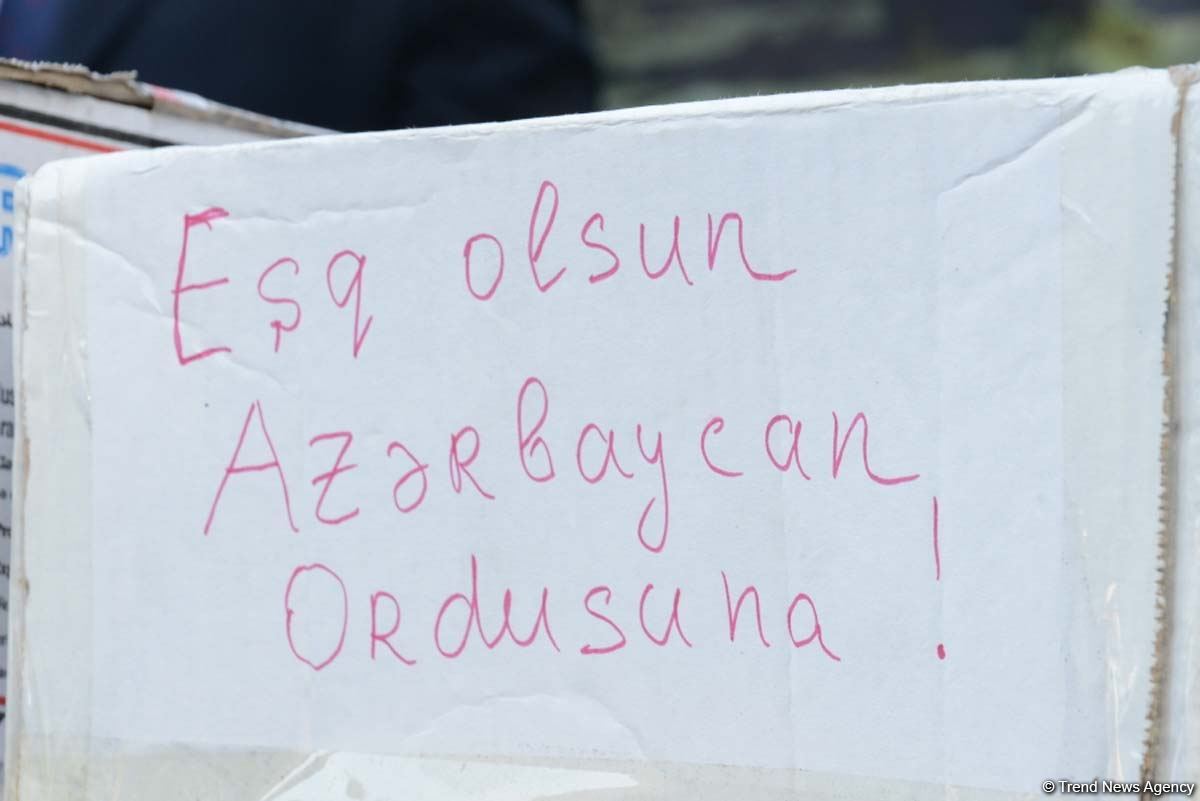 Eşq olsun
Azərbaycan
Ordusuna !
© Trend News Agency